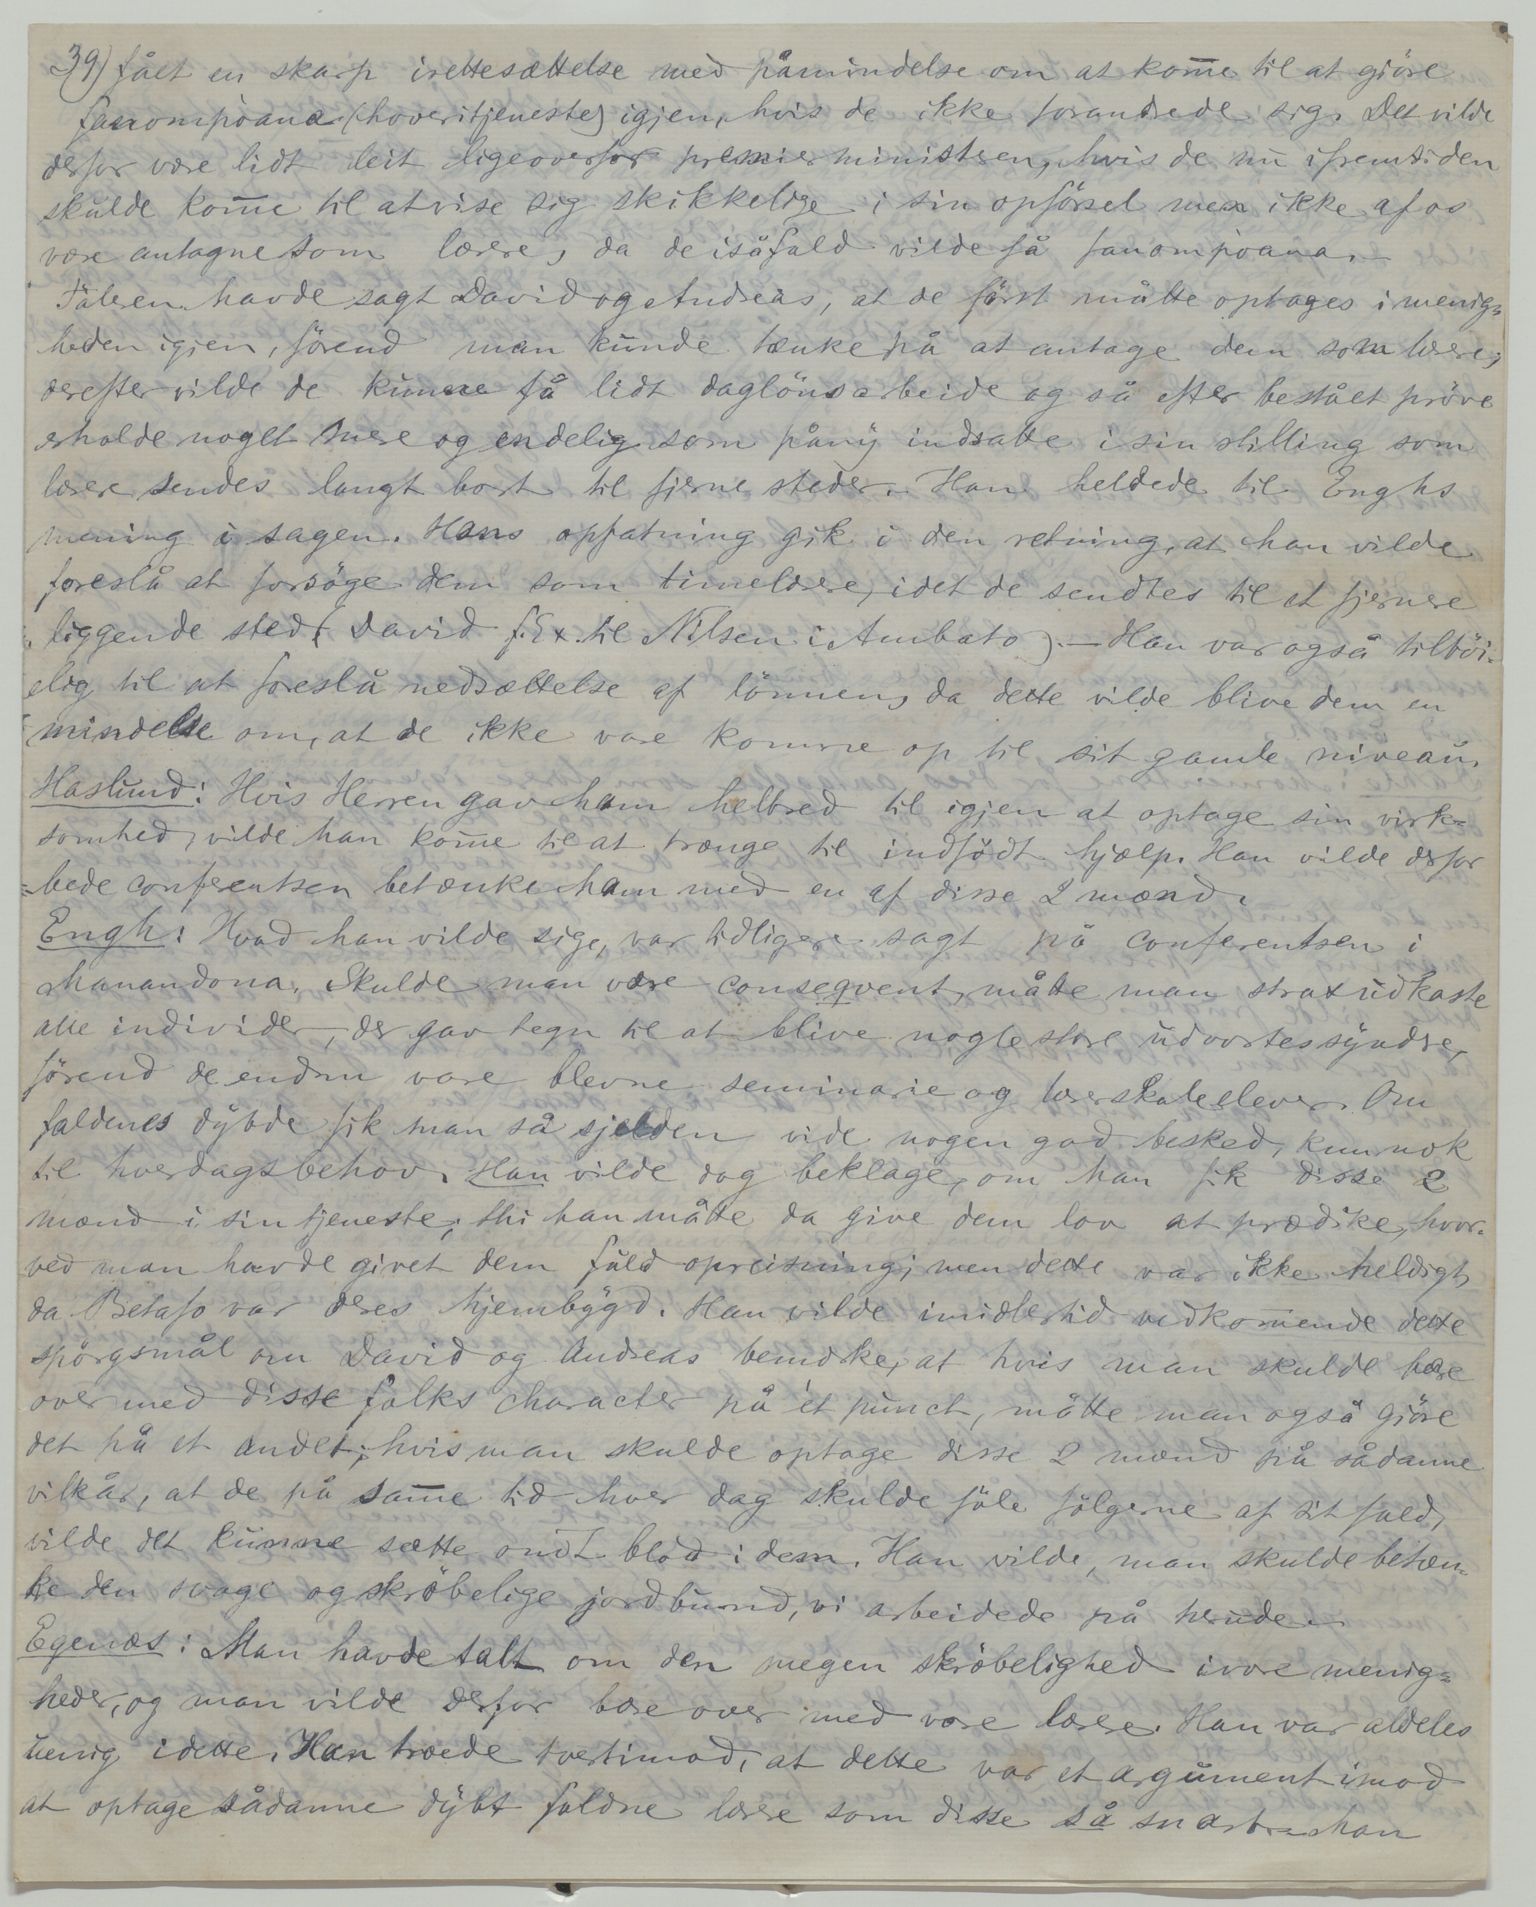 39) fået en skarp irettesættelse med påmindelse om at kom̅e til at gjöre
fanompoana (hoveritjeneste) igjen, hvis de ikke forandrede sig. Det vilde
derfor være lidt leit ligeoverfor premierministeren, hvis de nu ifremtiden
skulde kom̅e til at vise sig skikkelige i sin opförsel men ikke af os
være antagne som lærere, da de isåfald vilde få fanompoana.-
Talren havde sagt David og Andreas, at de först måtte optages i menig=
heden igjen, förend man kunde tænke på at antage dem som lærere,
derefter vilde de kunne få lidt daglönsarbeide og så efter bestået pröve
erholde noget mere og endelig som påny indsatte i sin stilling som
lærere sendes langt bort til fjerne steder. Han heldede til Enghs
mening i sagen. Hans opfatning gik i den retning, at han vilde
foreslå at forsöge dem som timelærere, idet de sendtes til et fjernere
liggende sted (David f. Ex. til Nilsen i Ambato).- Han var også tilböi=
elig til at foreslå nedsættelse af lönnen, da dette vilde blive dem en
mindelse om, at de ikke vare komne op til sit gamle niveau.
Haslund: Hvis Herren gav ham helbred til igjen at optage sin virk=
somhed, vilde han kom̅e til at trænge til indfödt hjælp. Han vilde derfor
bede conferentsen betænke ham med en af disse 2 mænd.
Engh: Hvad han vilde sige, var tidligere sagt på conferentsen i
Manandona. Skulde man være conseqvent, måtte man strax udkaste
alle individer, der gav tegn til at blive nogle store udvortes syndere,
förend de endnu vare blevne seminarie og lærerskoleelever. Om
faldenes dybde fik man så sjelden vide nogen god besked, kun nok
til hverdagsbehov. Han vilde dog beklage, om han fik disse 2
mænd i sin tjeneste; thi han måtte da give dem lov at prædike, hvor=
ved man havde givet dem fuld opreisning; men dette var ikke heldigt,
da Betafo var deres hjembygd. Han vilde imidlertid vedkom̅ende dette
spörgsmål om David og Andreas bemærke, at hvis man skulde bære
over med disse folks character på ét punct, måtte man også gjöre
det på et andet; hvis man skulde optage disse 2 mænd på sådanne
vilkår, at de på sam̅e tid hver dag skulde föle fölgerne af sit fald,
vilde det kunne sætte ondt blod i dem. Han vilde, man skulde betæn=
ke den svage og skröbelige jordbund, vi arbeidede på herude.
Egenæs: Man havde talt om den megen skröbelighed i vore menig=
heder, og man vilde derfor bære over med vore lærere. Han var aldeles
uenig i dette. Han troede tvertimod, at dette var et argument imod
at optage sådanne dybt faldne lærere som disse så snart. Man